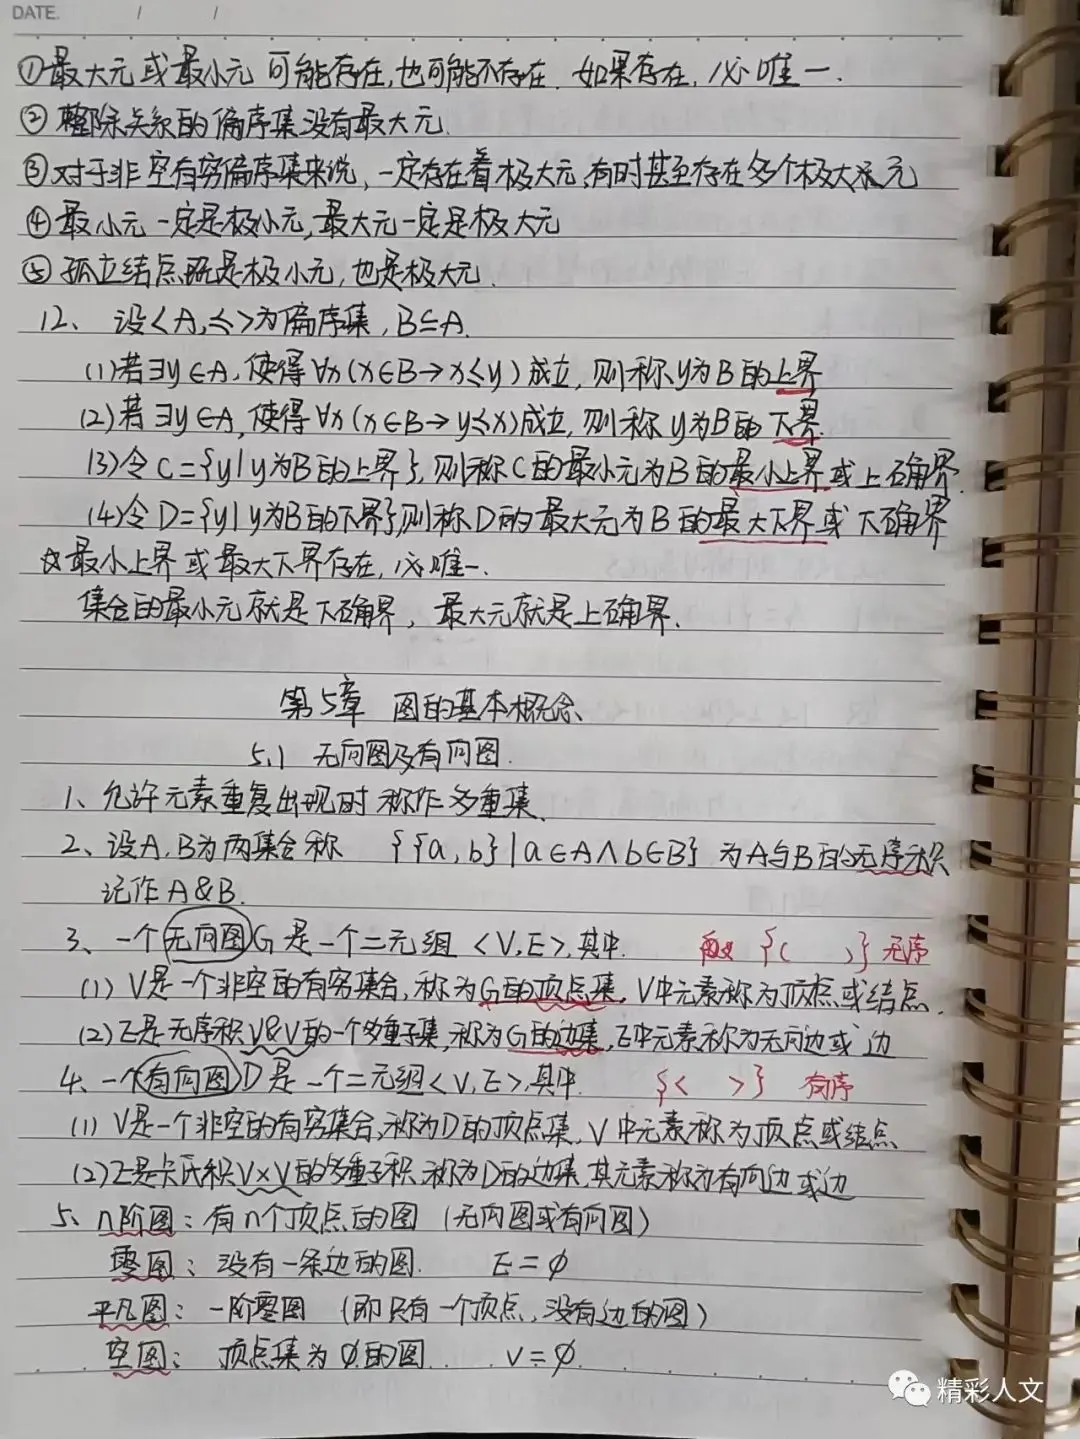 DATE. / /
①最大元或最小元可能存在,也可能不存在. 如果存在,必唯一.
②整除关系的偏序集没有最大元.
③对于非空有穷偏序集来说,一定存在着极大元,有时甚至存在多个极大元
④最小元一定是极小元,最大元一定是极大元
⑤孤立结点既是极小元,也是极大元.
12、设<A,≤>为偏序集,B⊆A.
(1)若∃y∈A,使得∀x(x∈B→x≤y)成立,则称y为B的上界
(2)若∃y∈A,使得∀x(x∈B→y≤x)成立,则称y为B的下界.
(3)令C={y|y为B的上界},则称C的最小元为B的最小上界或上确界.
(4)令D={y|y为B的下界},则称D的最大元为B的最大下界或下确界
☆最小上界或最大下界存在,必唯一.
集合的最小元就是下确界,最大元就是上确界.
第5章 图的基本概念、
5.1 无向图及有向图.
1、允许元素重复出现时称作多重集.
2、设A,B为两集合称 {{a,b}|a∈A∧b∈B} 为A与B的无序积
记作A&B.
3、一个无向图G是一个二元组<V,E>,其中. {( )} 无序
(1)V是一个非空的有穷集合,称为G的顶点集,V中元素称为顶点或结点.
(2)E是无序积V&V的一个多重子集,称为G的边集,E中元素称为无向边或边
4、一个有向图D是一个二元组<V,E>,其中. {< >} 有序
(1)V是一个非空的有穷集合,称为D的顶点集,V中元素称为顶点或结点
(2)E是卡氏积V×V的多重子积,称为D的边集,其元素称为有向边或边
5、n阶图:有n个顶点的图(无向图或有向图)
零图:没有一条边的图. E=∅
平凡图:一阶零图(即只有一个顶点,没有边的图)
空图:顶点集为∅的图. V=∅.
精彩人文